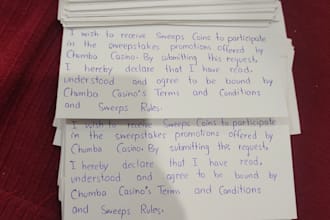 I wish to receive Sweeps Coins to participate
in the sweepstakes promotions offered by
Chumba Casino. By submitting this request,
I hereby declare that I have read,
understood and agree to be bound by
Chumba Casino's Terms and Conditions
and Sweeps Rules.
I wish to receive Sweeps Coins to participate
in the sweepstakes promotions offered by
Chumba Casino. By submitting this request,
I hereby declare that I have read,
understood and agree to be bound by
Chumba Casino's Terms and Conditions
and Sweeps Rules.